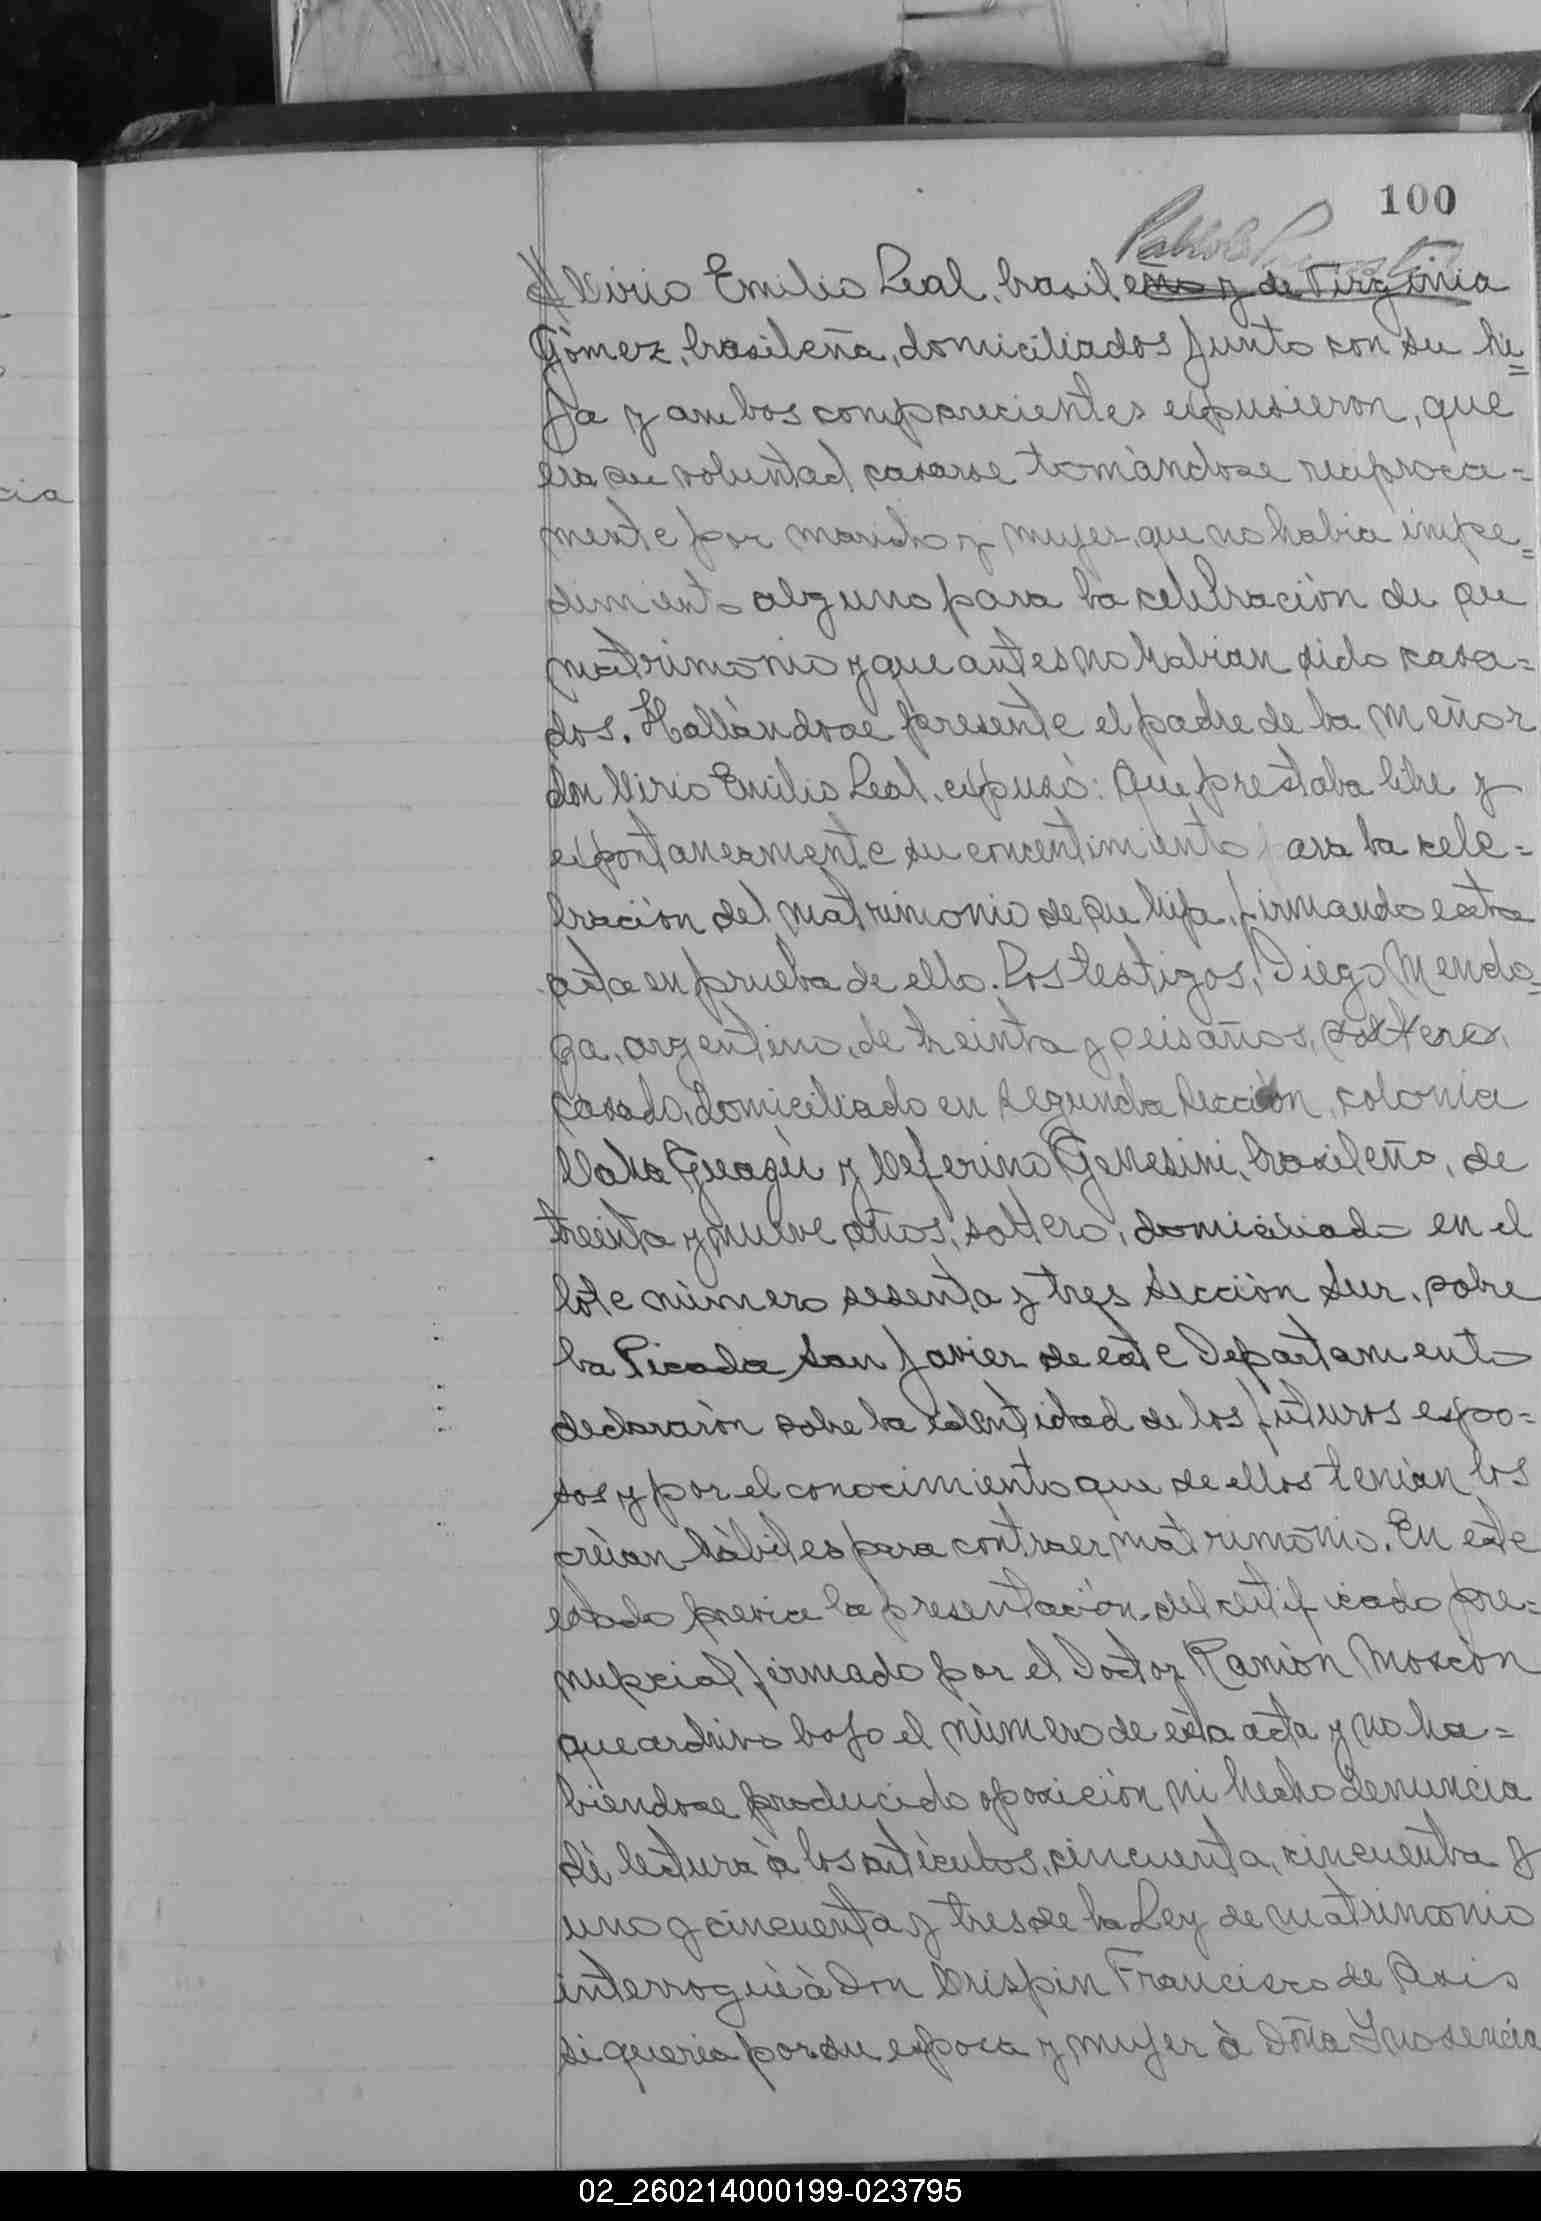 100
Cirio Emilio Leal, brasileño y de Virginia
Gómez, brasileña, domiciliados junto con su hi=
ja y ambos comparecientes expusieron, que
era su voluntad casarse tomándose reciproca=
mente por marido y mujer, que no habia impe=
dimento alguno para la celebración de su
matrimonio y que antes no habian sido casa=
dos. Hallándose presente el padre de la meñor
don Cirio Emilio Leal, expusó: Que prestaba libre y
expontaneamente su concentimiento para la cele=
bración del matrimonio de su hija, firmando esta
acta en prueba de ello. Los testigos, Diego Mendo=
za, argentino, de treinta y seis años, soltero,
casado, domiciliado en segunda sección, colonia
Guazú y Ceferino Genesini, brasileño, de
treinta y nueve años, soltero, domiciliado en el
lote número sesenta y tres sección Sur, sobre
la Picada San Javier de este Departamento
declararón sobre la identidad de los futuros espo=
sos y por el conocimiento que de ellos tenian los
creian hábiles para contraer matrimonio. En este
estado previa la presentación del certificado pre=
nupcial firmado por el Doctor Ramón Moscón
que archivo bajo el número de esta acta y no ha=
biéndose producido oposición ni hecho denuncia
dí lectura à los artículos, cincuenta, cincuenta y
uno y cincuenta y tres de la Ley de matrimonio
interrogué à Don Crispin Francisco de Asis
si queria por su esposa y mujer à Doña Inosencia
cia
02_260214000199-023795